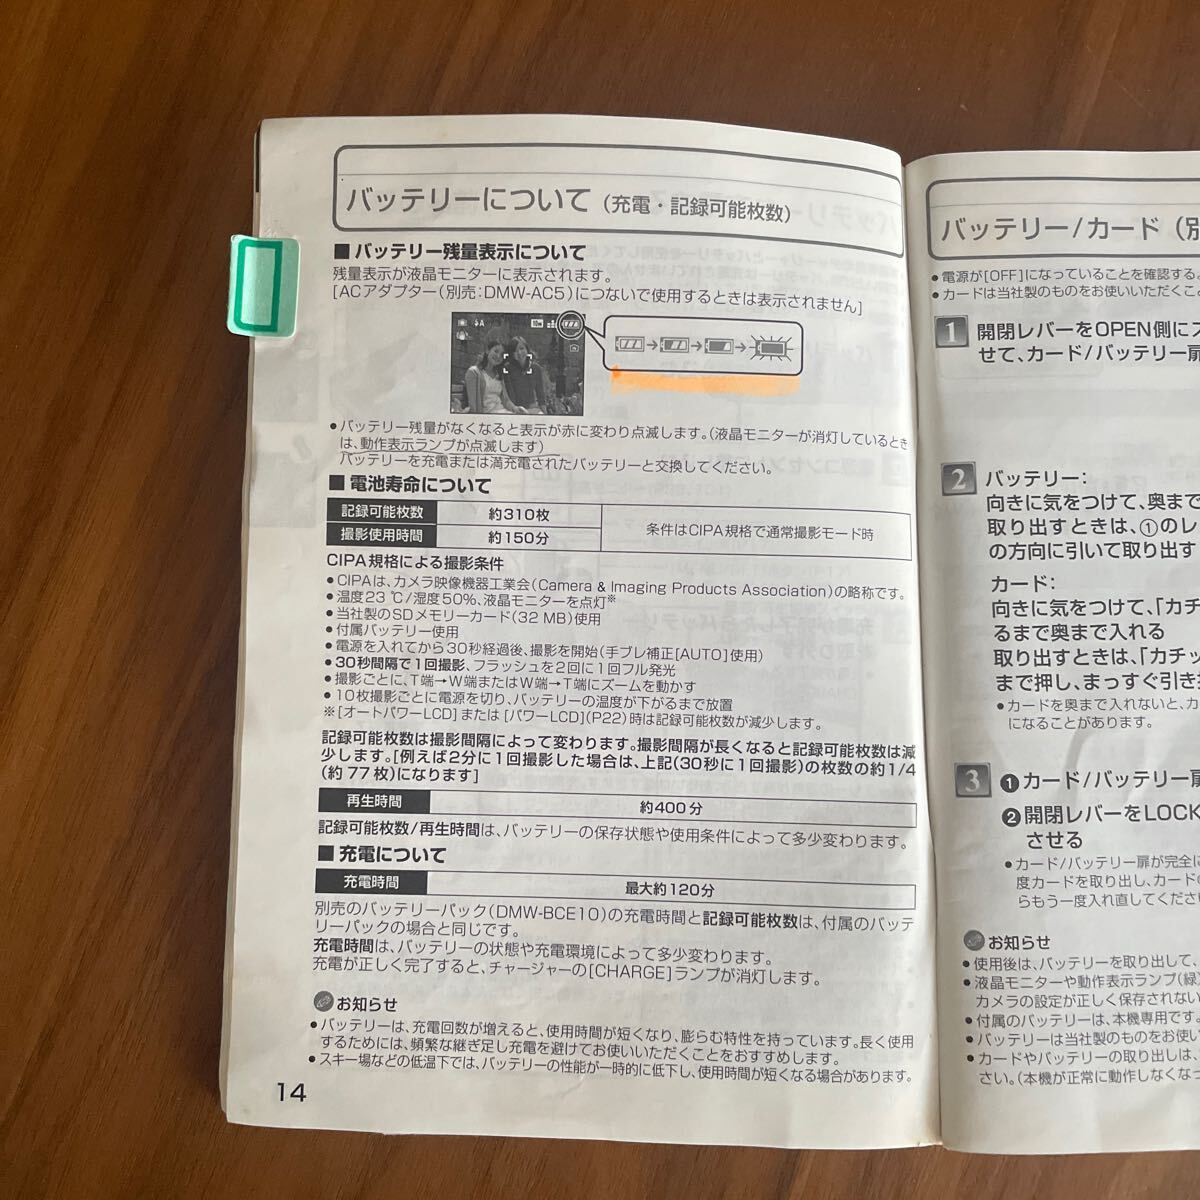 バッテリーについて(充電・記録可能枚数)
■バッテリー残量表示について
残量表示が液晶モニターに表示されます。
[ACアダプター(別売:DMW-AC5)につないで使用するときは表示されません]
●バッテリー残量がなくなると表示が赤に変わり点滅します。(液晶モニターが消灯しているとき
は、動作表示ランプが点滅します)
バッテリーを充電または満充電されたバッテリーと交換してください。
■電池寿命について
記録可能枚数 約310枚
条件はCIPA規格で通常撮影モード時
撮影使用時間 約150分
CIPA規格による撮影条件
●CIPAは、カメラ映像機器工業会(Camera & Imaging Products Association)の略称です。
●温度23℃/湿度50%、液晶モニターを点灯※
●当社製のSDメモリーカード(32 MB)使用
●付属バッテリー使用
●電源を入れてから30秒経過後、撮影を開始(手ブレ補正[AUTO]使用)
●30秒間隔で1回撮影、フラッシュを2回に1回フル発光
●撮影ごとに、T端→W端またはW端→T端にズームを動かす
●10枚撮影ごとに電源を切り、バッテリーの温度が下がるまで放置
※[オートパワーLCD]または[パワーLCD](P22)時は記録可能枚数が減少します。
記録可能枚数は撮影間隔によって変わります。撮影間隔が長くなると記録可能枚数は減
少します。[例えば2分に1回撮影した場合は、上記(30秒に1回撮影)の枚数の約1/4
(約77枚)になります]
再生時間 約400分
記録可能枚数/再生時間は、バッテリーの保存状態や使用条件によって多少変わります。
■充電について
充電時間 最大約120分
別売のバッテリーパック(DMW-BCE10)の充電時間と記録可能枚数は、付属のバッテ
リーパックの場合と同じです。
充電時間は、バッテリーの状態や充電環境によって多少変わります。
充電が正しく完了すると、チャージャーの[CHARGE]ランプが消灯します。
お知らせ
●バッテリーは、充電回数が増えると、使用時間が短くなり、膨らむ特性を持っています。長く使用
するためには、頻繁な継ぎ足し充電を避けてお使いいただくことをおすすめします。
●スキー場などの低温下では、バッテリーの性能が一時的に低下し、使用時間が短くなる場合があります。
14
バッテリー/カード(別
●電源が[OFF]になっていることを確認する。
●カードは当社製のものをお使いいただくこ
1 開閉レバーをOPEN側に
せて、カード/バッテリー扉
2 バッテリー:
向きに気をつけて、奥まで
取り出すときは、①のレ
の方向に引いて取り出す
カード:
向きに気をつけて、「カチ
るまで奥まで入れる
取り出すときは、「カチッ
まで押し、まっすぐ引き
●カードを奥まで入れないと、カ
になることがあります。
3 ❶カード/バッテリー扉
❷開閉レバーをLOCK
させる
●カード/バッテリー扉が完全に
度カードを取り出し、カードの
らもう一度入れ直してくださ
お知らせ
●使用後は、バッテリーを取り出して、
●液晶モニターや動作表示ランプ(緑)
カメラの設定が正しく保存されない
●付属のバッテリーは、本機専用です。
●バッテリーは当社製のものをお使い
●カードやバッテリーの取り出しは、
さい。(本機が正常に動作しなくなっ